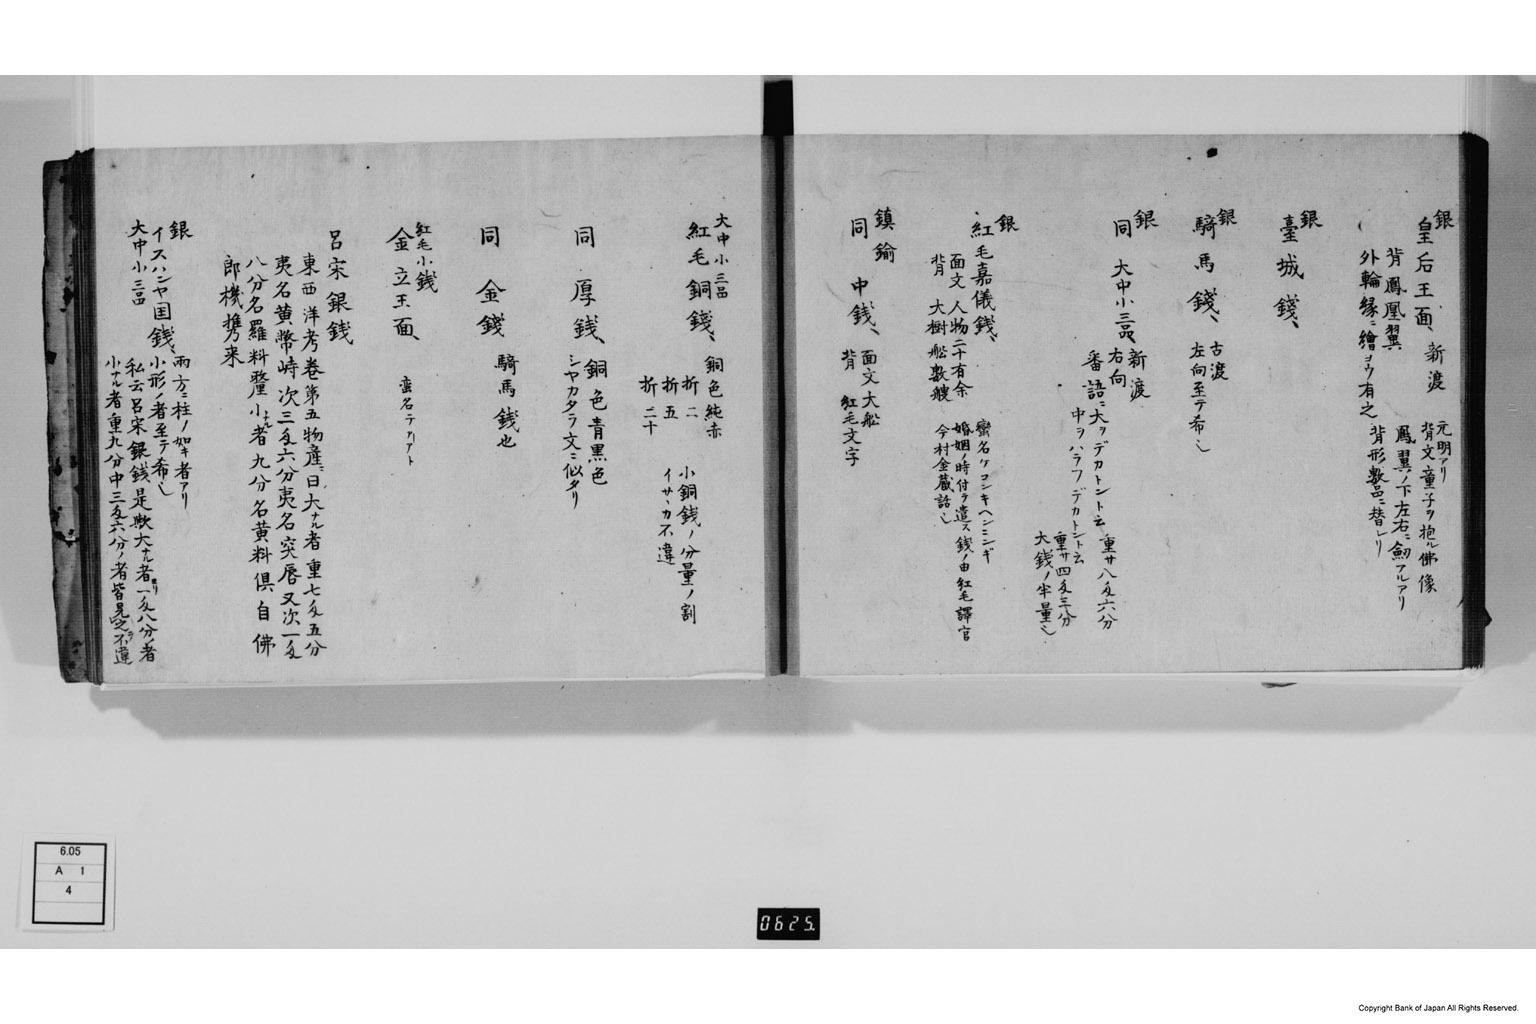 銀
皇后王面、新渡
元明アリ
背文童子ヲ抱ル佛像
背鳳凰翼
鳳翼ノ下左右ニ劔アルアリ
外輪縁ニ繪ヲウ有之
背形數品ニ替レリ
銀
臺城錢、
銀
騎馬錢、
古渡
左向至テ希也
銀
同 大中小三品、
新渡
右向
番語ニ大ヲデカトントト云 重サ八匁六分
中ヲハラフデカトントト云 重サ四匁三分
大銭ノ半量也
銀
紅毛嘉儀錢、
面文人物二十有余
背 大樹船數艘
蠻名ケコンキヘンミンギ
婚姻ノ時付ヲ遣ス銭ノ由紅毛譯官
今村金蔵話也
鎮鍮
同 中銭、
面文大船
背 紅毛文字
大中小三品
紅毛銅錢、
銅色純赤
折二
折五
折二十
小銅銭ノ分量ノ割
イサヽカ不違
同 厚銭、
銅色青黒色
シヤカタラ文ニ似タリ
同 金錢
騎馬銭也
紅毛小銭
金立王面、
蛮名テカアト
呂宋銀銭
東西洋考巻第五物産ニ曰大ナル者重七匁五分
夷名黄幣峙次三匁六分夷名突唇又次一匁
八分名羅料釐小ナル者九分名黄料俱自佛
郎機携来
銀
イスハンヤ国錢、
大中小三品
両方ニ柱ノ如キ者アリ
小形ノ者至テ希也
私云呂宋銀銭是欤大ナル者ヨリ一匁八分者
小ナル者重九分中三匁六分ノ者皆是ニヲ不違
6.05
A 1
4
0625.
Copyright Bank of Japan All Rights Reserved.